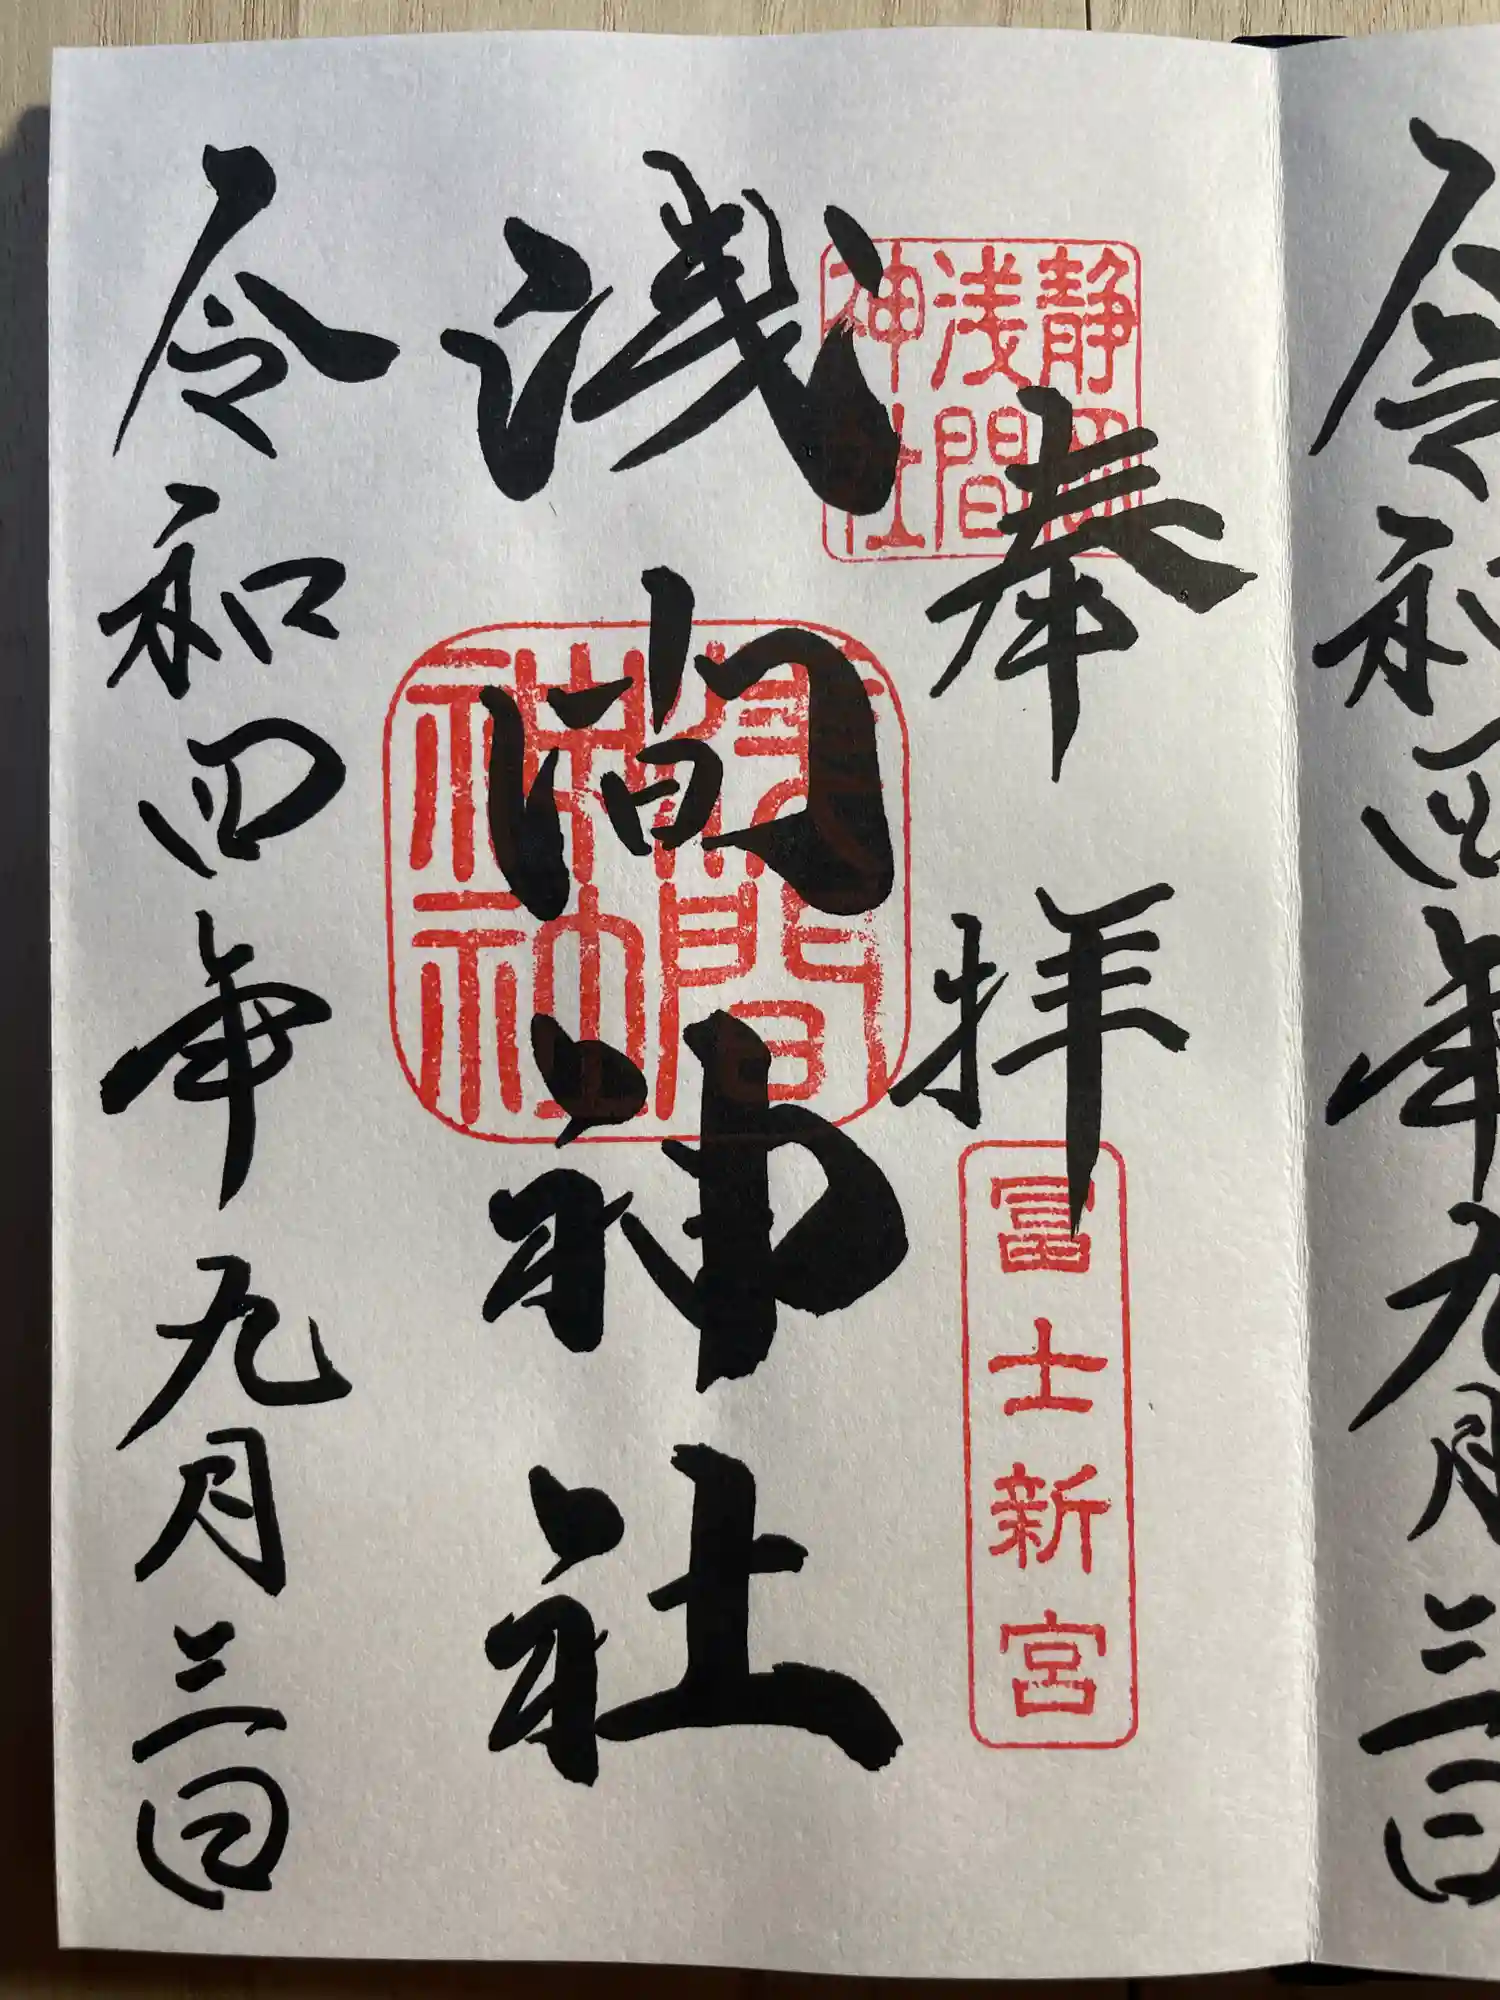 令和四年九月三日
奉拝
静岡
浅間
神社
富士新宮
浅間神社
浅間
神社
令和四年九月三日